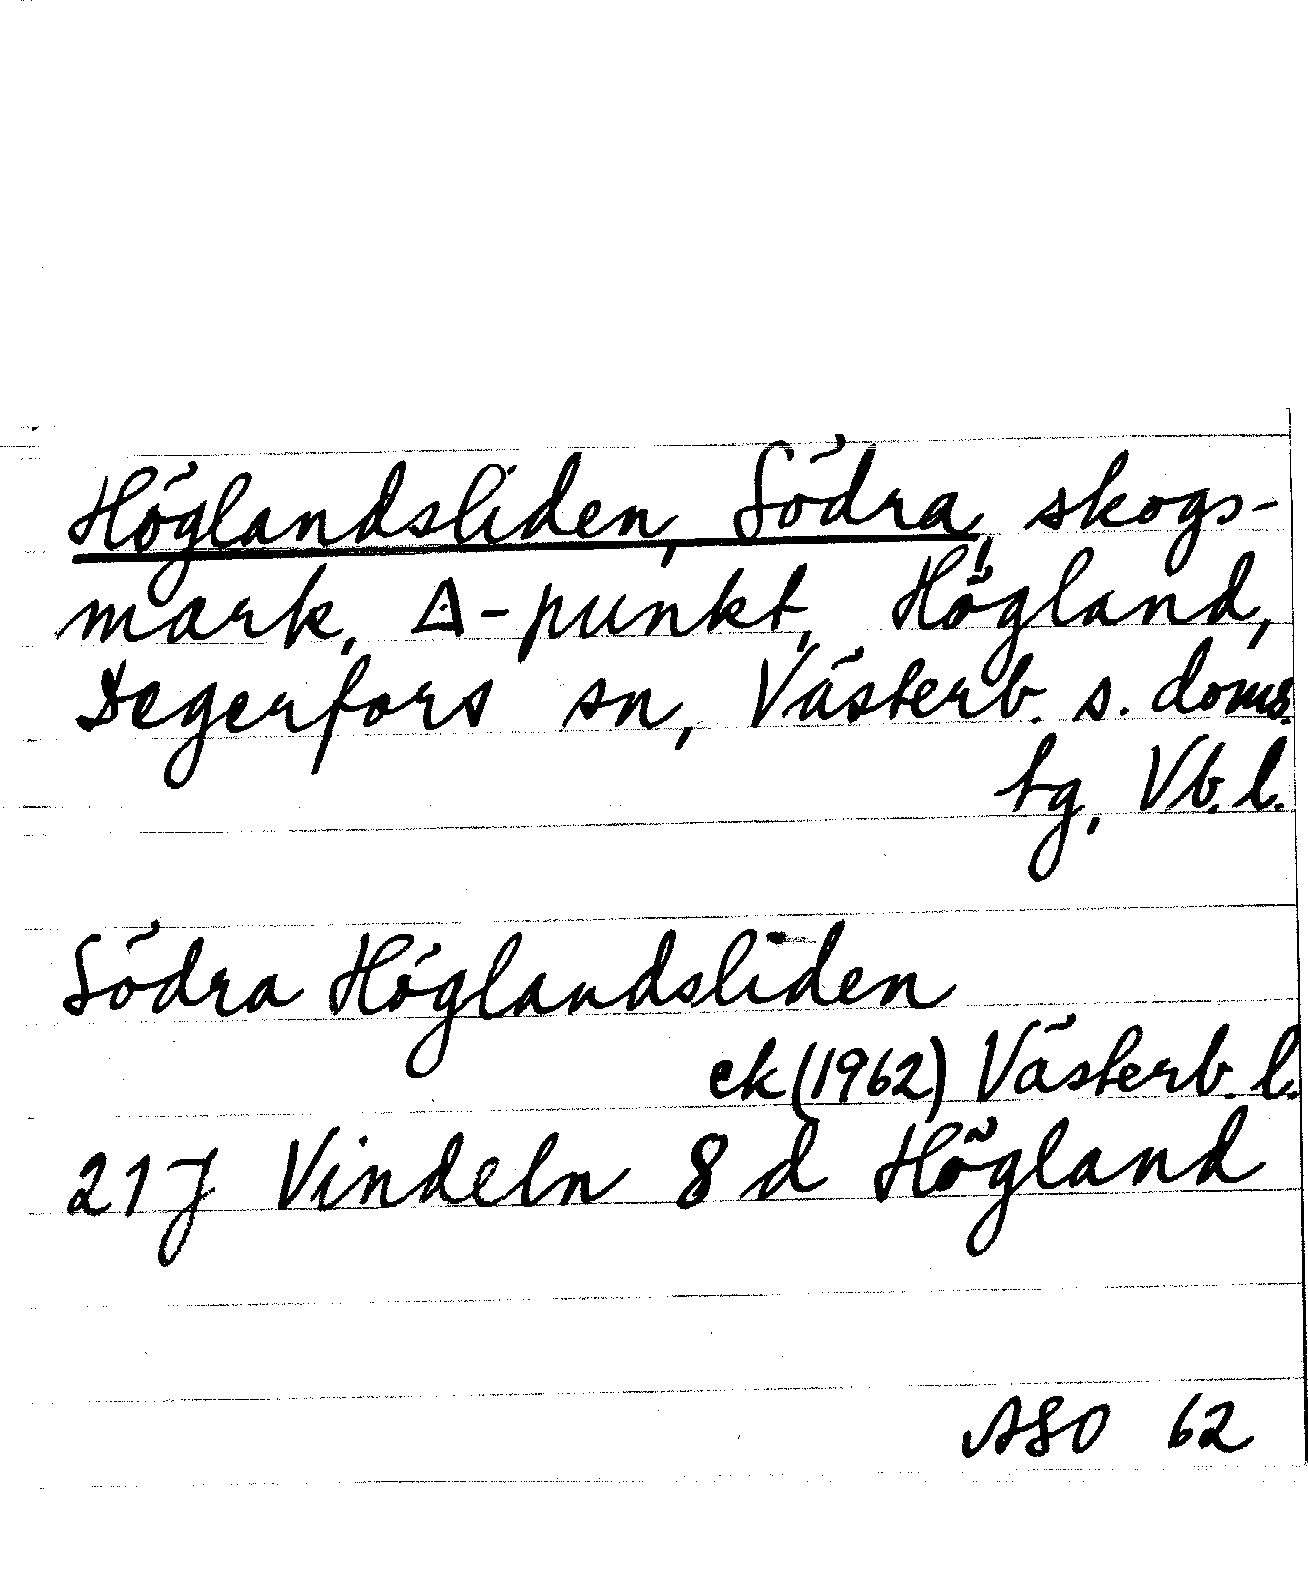 Höglandsliden, Södra, skogs-
mark, Δ-punkt, Högland,
Degerfors sn, Västerb. s. doms.
tg, Vb. l.
Södra Höglandsliden
ek (1962) Västerb. l.
21J Vindeln 8 d Högland
ASO 62